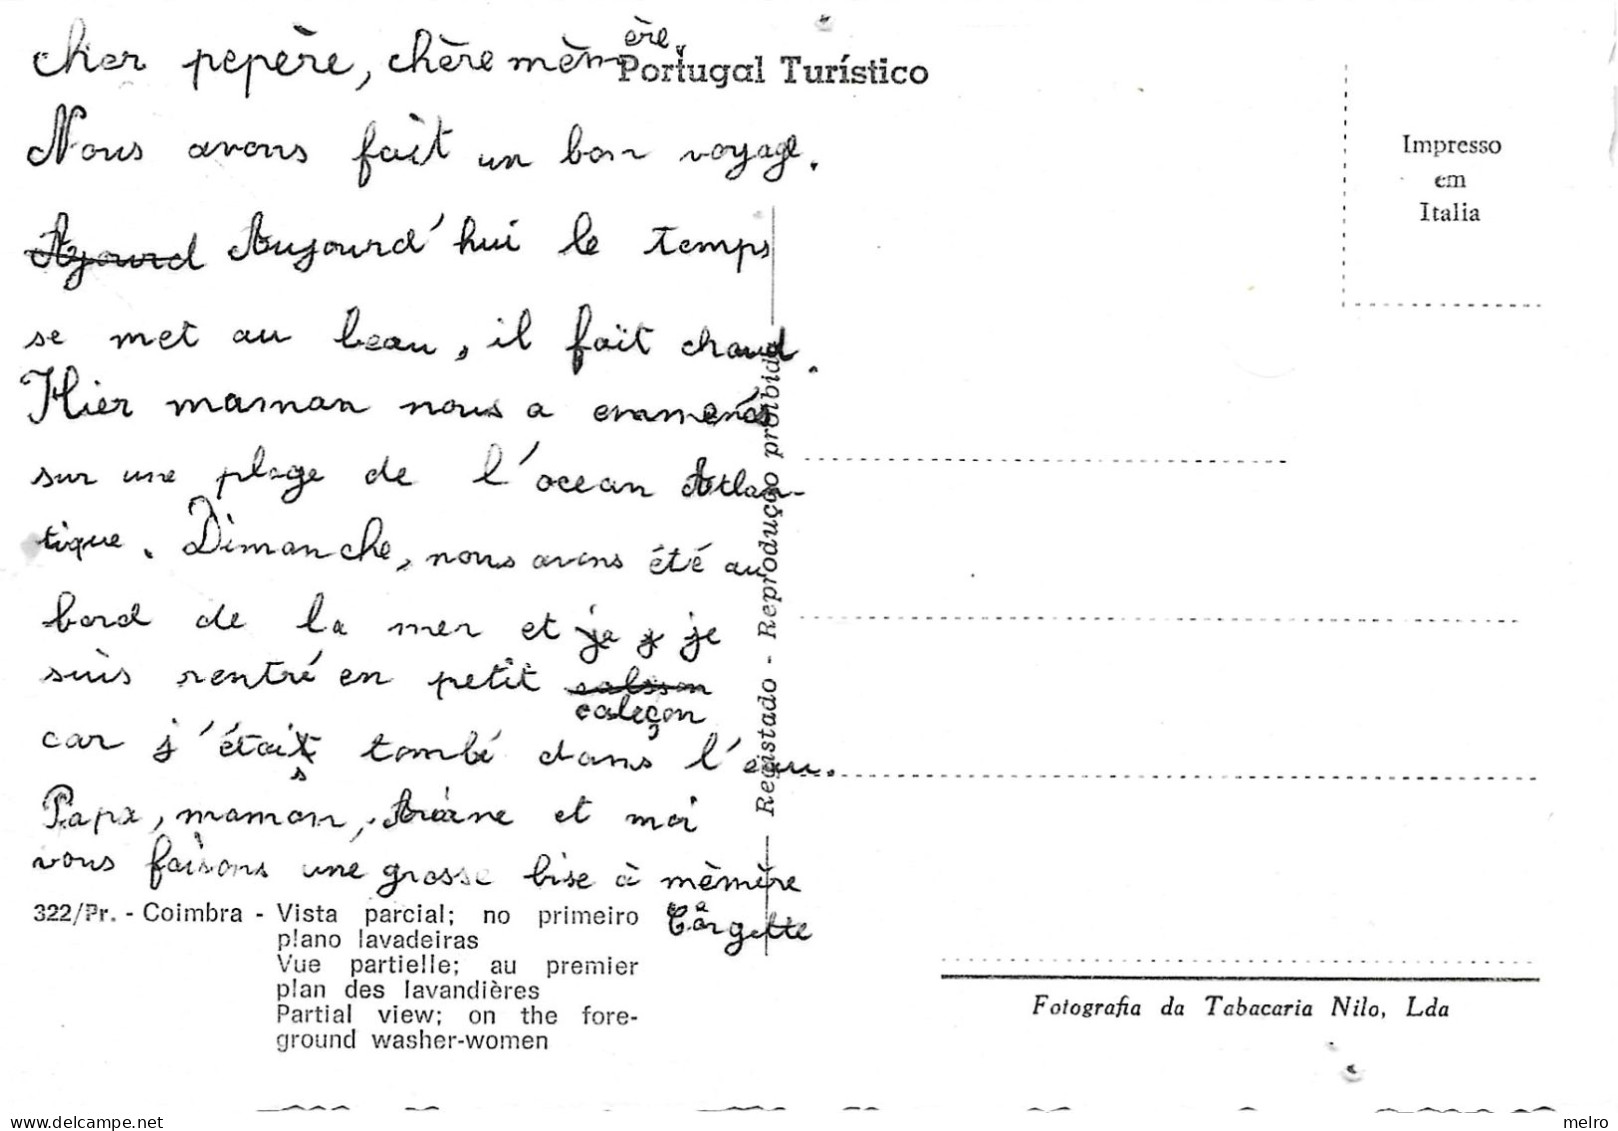 cher pepère, chère mèmère,
Portugal Turístico
Nous avons fait un bon voyage.
Ajourd Aujourd'hui le temps
se met au beau, il fait chaud.
Hier maman nous a emmenés
sur une plage de l'ocean Atlan-
tique. Dimanche, nous avons été au
bord de la mer et je y je
suis rentré en petit calsson
caleçon
car j'étais tombé dans l'eau.
Papa, maman, Ariane et moi
vous faisons une grosse bise à mèmère
322/Pr. - Coimbra - Vista parcial; no primeiro
plano lavadeiras
Vue partielle; au premier
plan des lavandières
Partial view; on the fore-
ground washer-women
Registado - Reprodução proibida
Impresso
em
Italia
Fotografia da Tabacaria Nilo, Lda
delcampe.net
melro